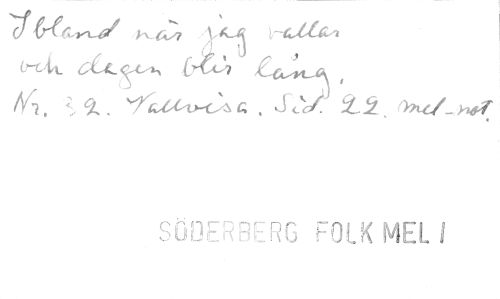 Ibland när jag vallar
och dagen blir lång.
Nr. 32. Vallvisa. Sid. 22. mel-not.
SÖDERBERG FOLK MEL I